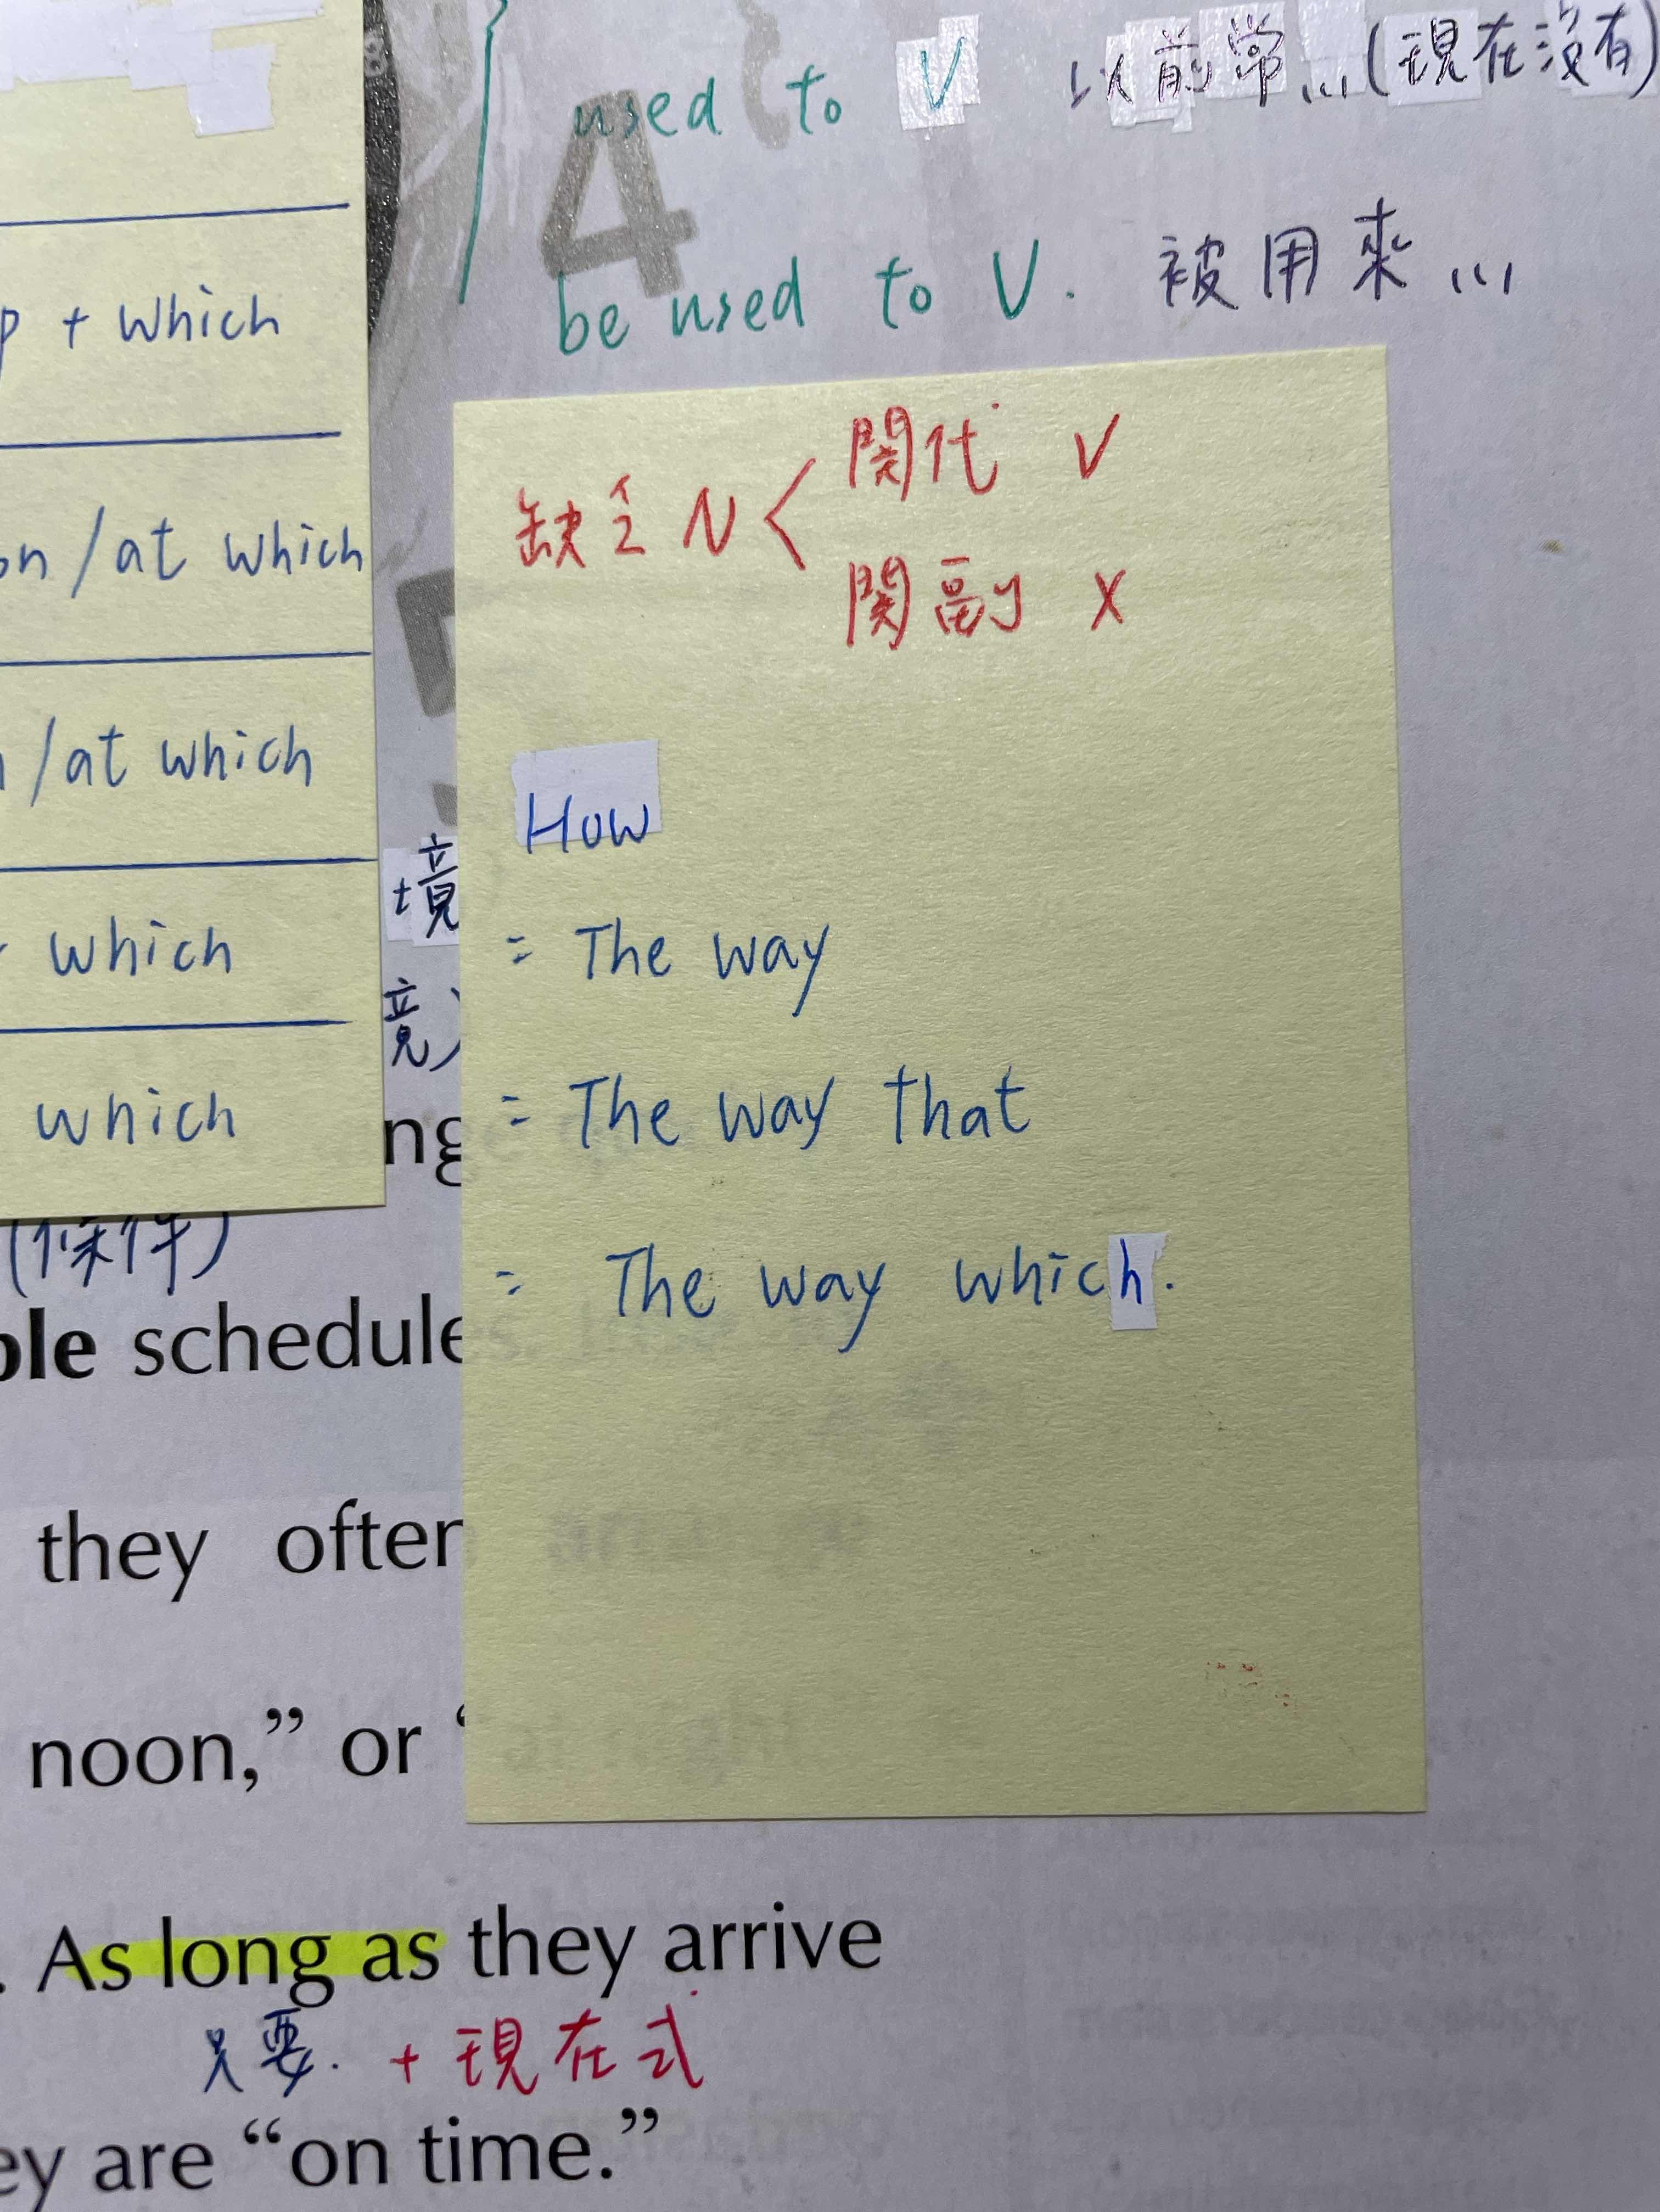 used to V 以前常...(現在沒有)
be used to V. 被用來...
+ which
on/at which
/at which
which
which
缺乏 N < 関代 V
関副 X
How
= The way
= The way that
= The way which.
境
竟)
(條件)
ble schedule
they often
noon,” or “
. As long as they arrive
只要. + 現在式
ey are “on time.”
4